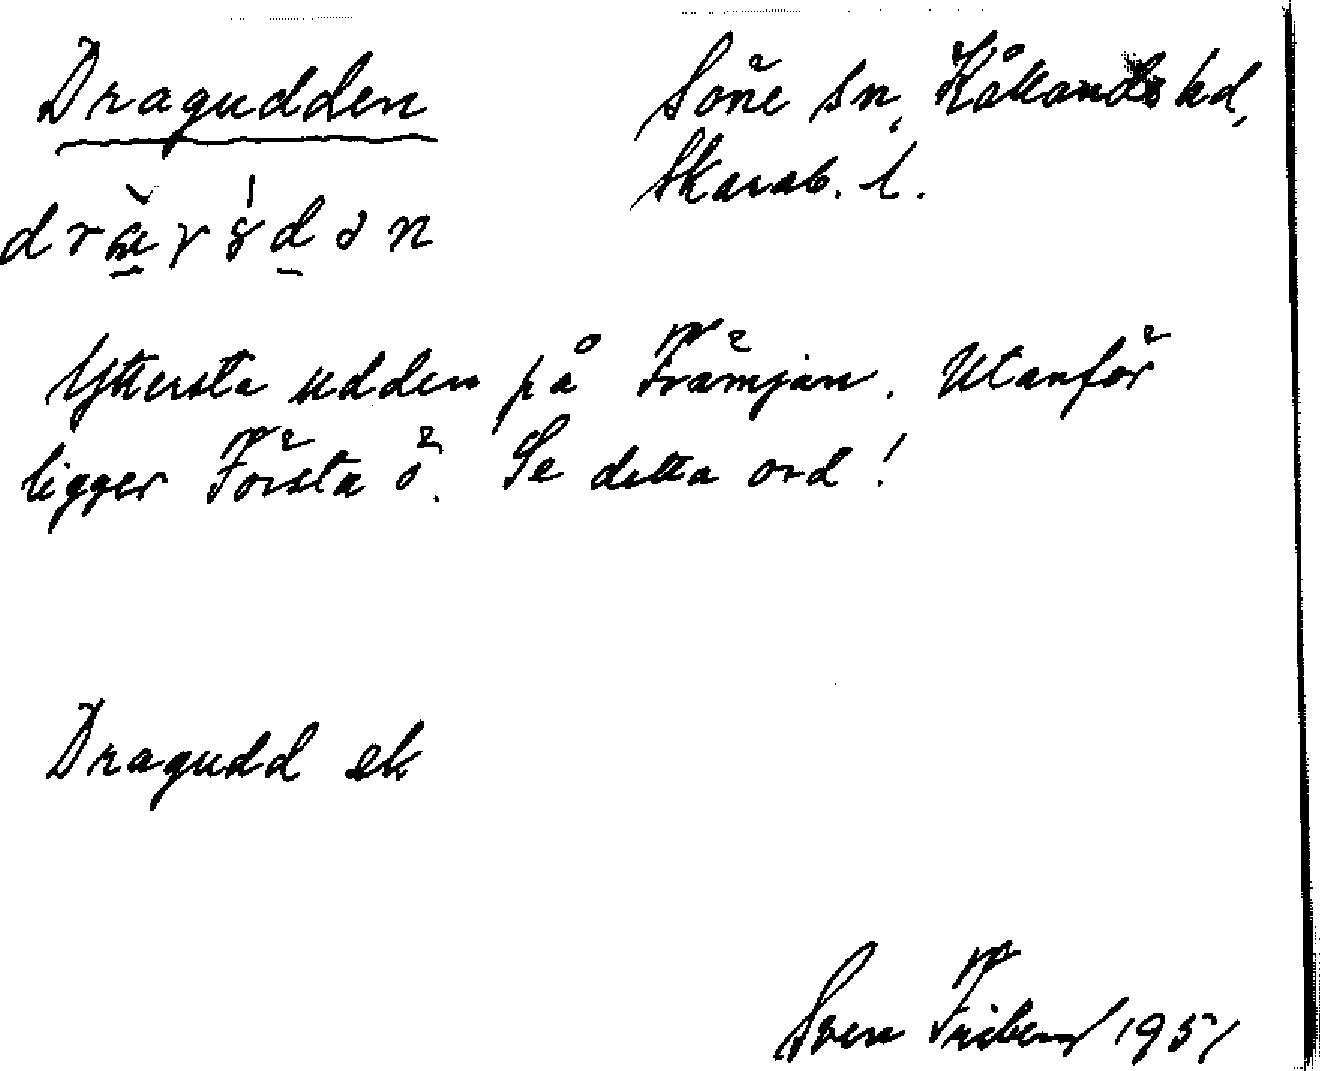 Dragudden
Söne sn, Kållands hd,
Skarab. l.
Yttersta udden på Främjan. Utanför
ligger Första ö. Se detta ord!
Dragudd ek
Sven Friberg 1951